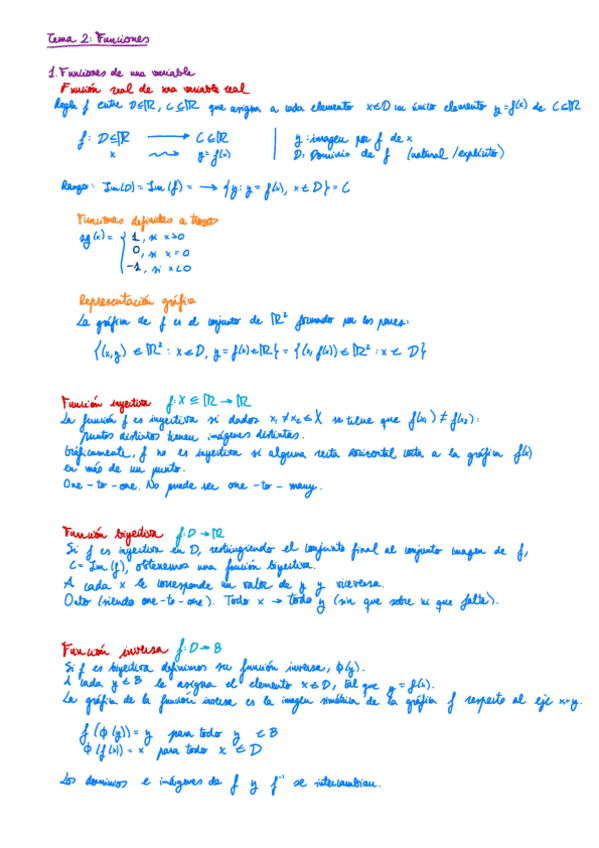 Tema 2: Funciones
1. Funciones de una variable
Función real de una variable real
Regla f entre D⊆ℝ, C⊆ℝ que asigna a cada elemento x∈D un único elemento y=f(x) de C⊆ℝ
f: D⊆ℝ ⟶ C⊆ℝ | y: imagen por f de x
x ⇝ y=f(x) | D: Dominio de f (natural/explícito)
Rango: Im(D) = Im(f) = → {y: y = f(x), x∈D} = C
Funciones definidas a trozos
sg(x) = { 1, si x>0
0, si x=0
-1, si x<0
Representación gráfica
La gráfica de f es el conjunto de ℝ² formado por los pares:
{(x,y) ∈ ℝ² : x∈D, y = f(x)∈ℝ} = {(x, f(x)) ∈ ℝ² : x ∈ D}
Función inyectiva f: X ⊆ ℝ → ℝ
La función f es inyectiva si dados x₁ ≠ x₂ ∈ X se tiene que f(x₁) ≠ f(x₂):
puntos distintos tienen imágenes distintas.
Gráficamente, f no es inyectiva si alguna recta horizontal corta a la gráfica f(x)
en más de un punto.
One-to-one. No puede ser one-to-many.
Función biyectiva f: D → ℝ
Si f es inyectiva en D, restringiendo el conjunto final al conjunto imagen de f,
C = Im(f), obtenemos una función biyectiva.
A cada x le corresponde un valor de y y viceversa.
Onto (siendo one-to-one). Todo x → todo y (sin que sobre ni que falte).
Función inversa f: D → B
Si f es biyectiva definimos su función inversa, ϕ(y).
A cada y∈B le asigna el elemento x∈D, tal que y = f(x).
La gráfica de la función inversa es la imagen simétrica de la gráfica f respecto al eje x=y.
f(ϕ(y)) = y para todo y ∈ B
ϕ(f(x)) = x para todo x ∈ D
Los dominios e imágenes de f y f⁻¹ se intercambian.